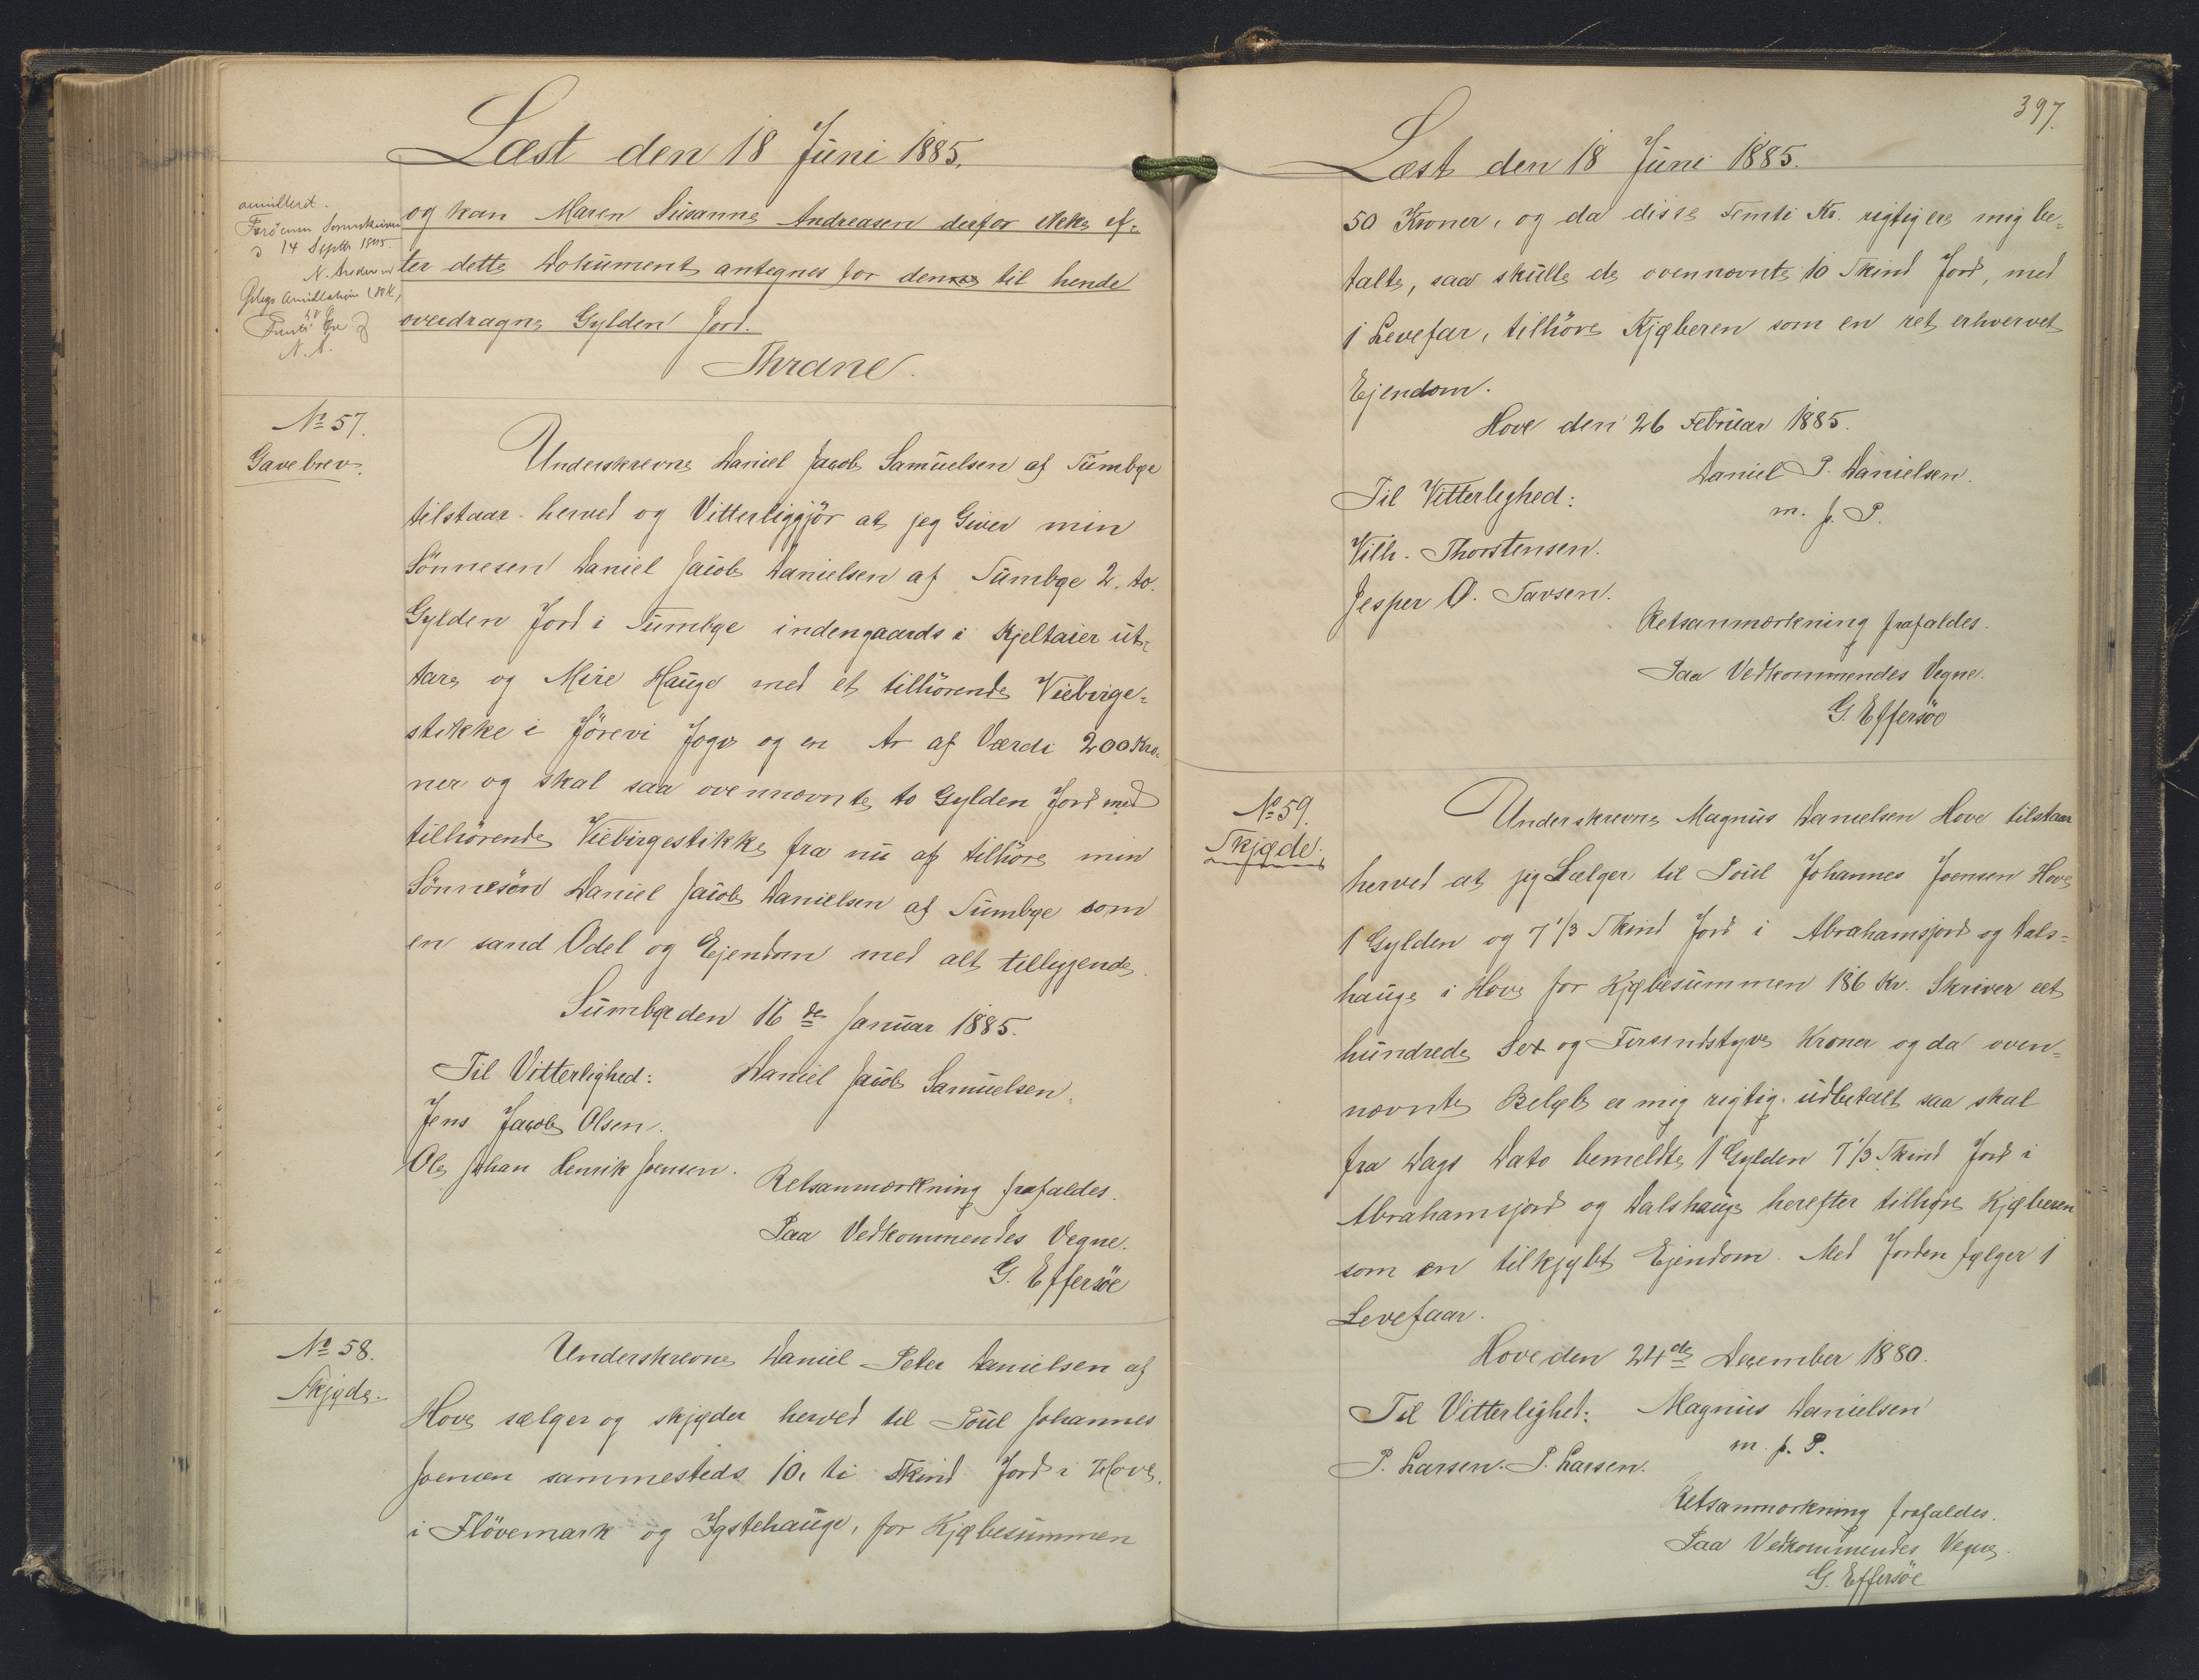 Læst den 18 Juni 1885.
annulleret.
Færøernes Sorenskriveri
d 14 Septbr 1885.
N. Andersen
Gebyr Annullation
N. A.
og kan Maren Susanne Andreasen derfor ikke ef-
ter dette Dokument antegnes for denne til hende
overdragne Gylden Jord.
Thrane.
№ 57.
Gavebrev.
Underskrevne Daniel Jacob Samuelsen af Sumbge
tilstaar herved og Vitterliggjör at jeg Giver min
Sönnesen Daniel Jacob Danielsen af Sumbge 2. to.
Gylden Jord i Sumbge indengaards i Kjeltaier ut-
tare og Mire Hauge med et tilhörende Viebirge-
stikke i Jörevi Jogv og en Ar af Værdi 200 Kro-
ner og skal saa ovennævnte to Gylden Jord med
tilhörende Viebirgestikke fra nu af tilhöre min
Sönnesön Daniel Jacob Danielsen af Sumbge som
en sand Odel og Ejendom med alt tilliggende.
Sumbge den 16de Januar 1885.
Til Vitterlighed: Daniel Jacob Samuelsen.
Jens Jacob Olsen.
Ole Johan Henrik Joensen.
Retsanmærkning frafaldes.
Paa Vedkommendes Vegne.
G. Effersöe
№ 58.
Skjøde.
Underskrevne Daniel Peter Danielsen af
Hove sælger og skjøder herved til Poul Johannes
Joensen sammesteds 10, ti Skind Jord i Hove,
i Flövemark og Igstehauge, for Kjøbesummen
397.
Læst den 18 Juni 1885.
50 Kroner, og da disse Femti Kr. rigtig ere mig be-
talte, saa skulle de ovennævnte 10 Skind Jord, med
1 Levefar, tilhöre Kjøberen som en ret erhvervet
Ejendom.
Hove den 26 Februar 1885.
Daniel P. Danielsen.
m. f. P.
Til Vitterlighed:
Vilh. Thorstensen.
Jesper O. Tavsen.
Retsanmærkning frafaldes.
Paa Vedkommendes Vegne.
G. Effersöe
№ 59.
Skjøde.
Underskrevne Magnus Danielsen Hove tilstaar
herved at jeg Sælger til Poul Johannes Joensen Hove
1 Gylden og 7 1/3 Skind Jord i Abrahamsjord og Dals-
hauge i Hove for Kjøbesummen 186 Kr. Skriver eet
hundrede Sex og Firsindstyve Kroner og da oven-
nævnte Beløb er mig rigtig udbetalt saa skal
fra Dags Dato bemeldte 1 Gylden 7 1/3 Skind Jord i
Abrahamsjord og Dalshauge herefter tilhøre Kjøberen
som en tilkjøbt Ejendom. Med Jorden følger 1
Levefaar.
Hove den 24de December 1880.
Til Vitterlighed: Magnus Danielsen
m. f. P.
P. Larsen. P. Larsen.
Retsanmærkning frafaldes.
Paa Vedkommendes Vegne.
G. Effersöe